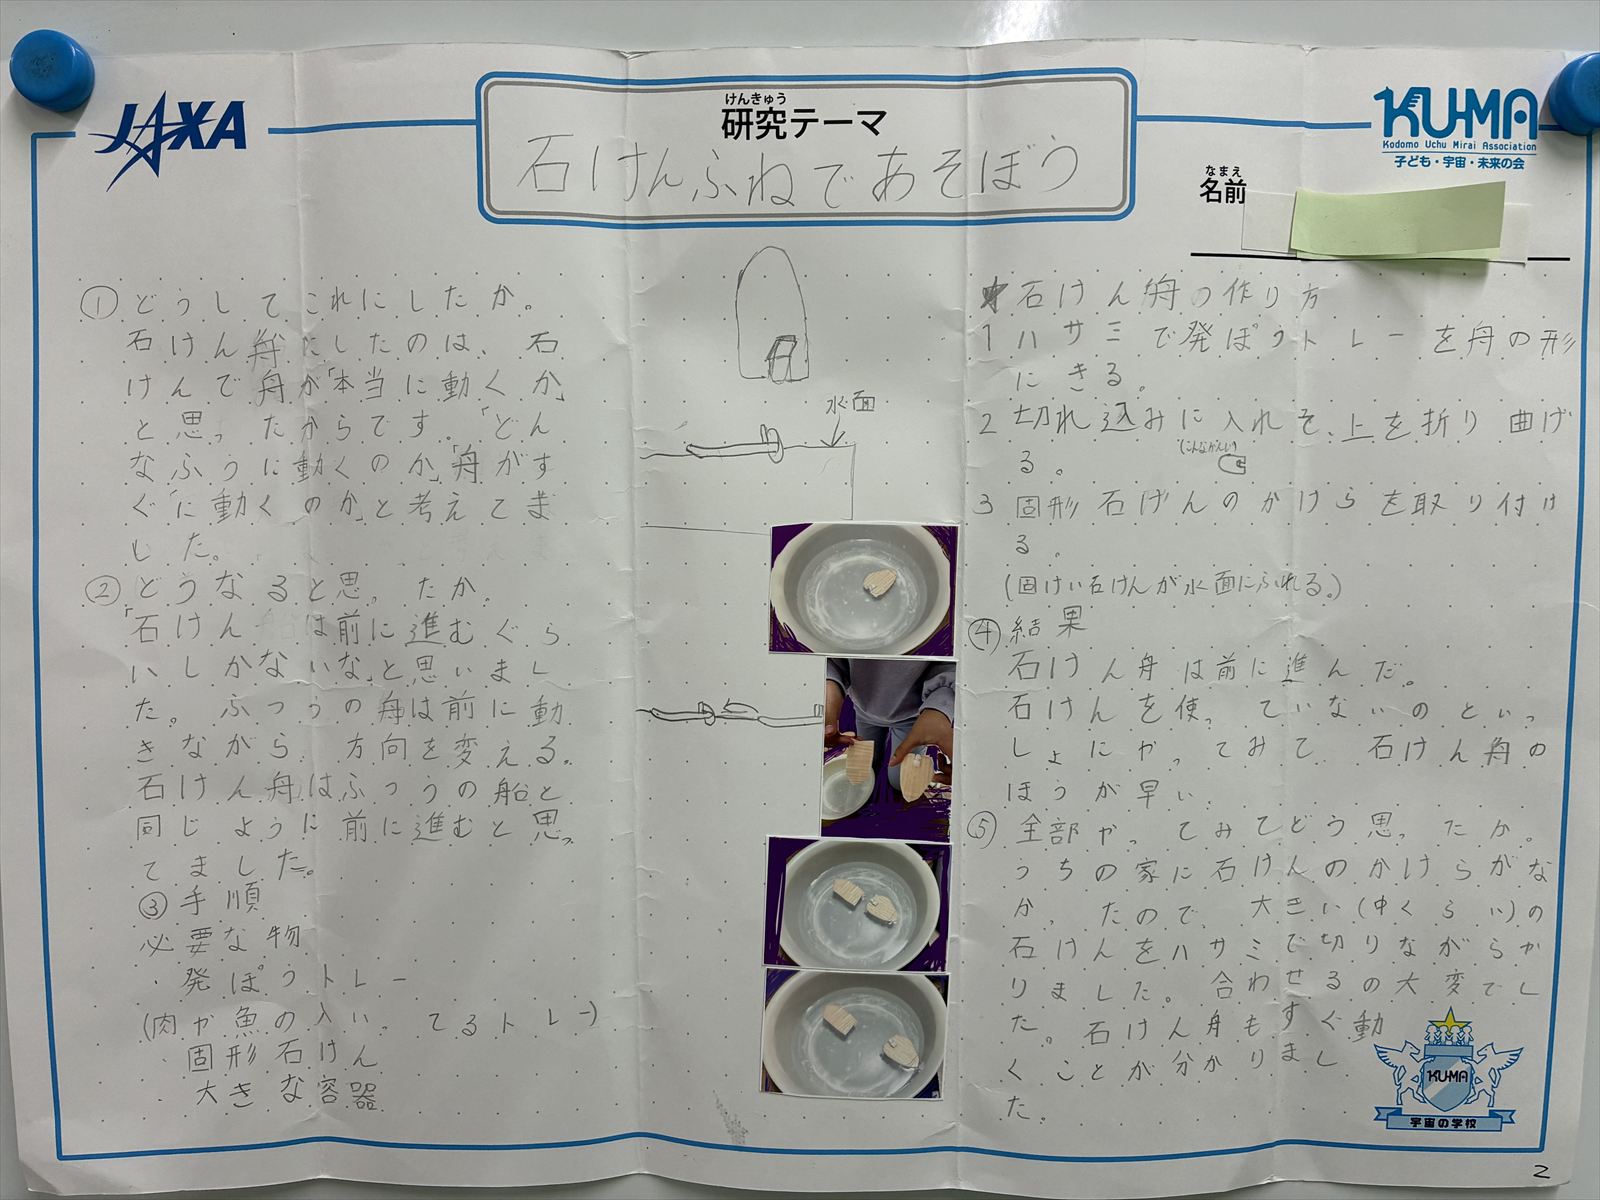 JAXA
けんきゅう
研究テーマ
石けんふねであそぼう
KU-MA
Kodomo Uchu Mirai Association
子ども・宇宙・未来の会
なまえ
名前
①どうしてこれにしたか。
石けん舟にしたのは、石
けんで舟が「本当に動くか」
と思ったからです。「どん
なふうに動くのか」「舟がす
ぐに動くのか」と考えてま
した。
②どうなると思ったか。
「石けん は前に進むぐら
いしかないな」と思いまし
た。ふつうの舟は前に動
きながら、方向を変える。
石けん舟はふつうの船と
同じように前に進むと思っ
てました。
③手順
必要な物
・発ぽうトレー
(肉や魚の入いってるトレー)
固形石けん
大きな容器
水面
★石けん舟の作り方
1 ハサミで発ぽうトレーを舟の形
にきる。
2 切れ込みに入れそ、上を折り曲げ
る。
(こんなかんい)
3 固形石げんのかけらを取り付け
る。
(固けい石けんが水面にふれる。)
④結果
石けん舟は前に進んだ。
石けんを使っていないのといっ
しょにやってみて、石けん舟の
ほうが早い。
⑤全部やってみてどう思ったか。
うちの家に石けんのかけらがな
かったので、大きい(中くらい)の
石けんをハサミで切りながらか
りました。合わせるの大変でし
た。石けん舟もすぐ動
くことが分かりまし
た。
KU-MA
宇宙の学校
2